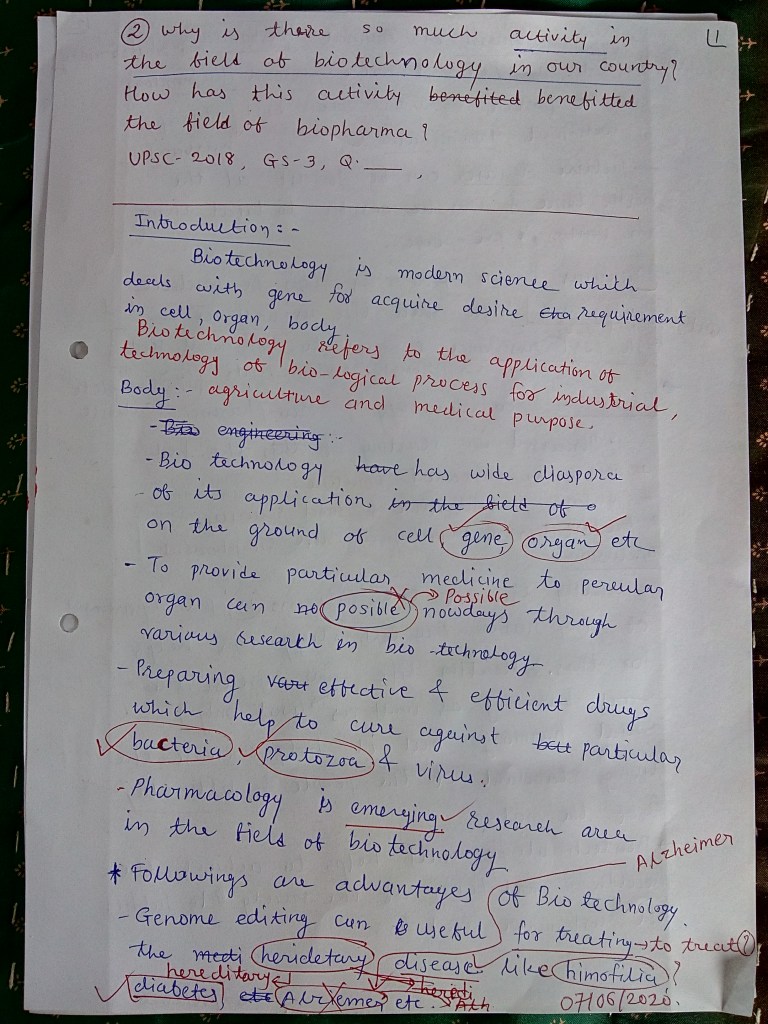 ② Why is there so much activity in
the field of biotechnology in our country?
How has this activity benefited benefitted
the field of biopharma?
UPSC-2018, GS-3, Q. __ ,
Introduction :-
Biotechnology is modern science which
deals with gene for acquire desire requirement
in cell, organ, body.
Biotechnology refers to the application of
technology of bio-logical process for industrial,
Body :- agriculture and medical purpose.
- Bio engineering :-
- Bio technology have has wide diaspora
- of its application in the field of
on the ground of cell, gene, organ etc
- To provide particular medicine to perculan
organ can no posible → Possible nowdays through
various research in bio-technology
- Preparing vari effective & efficient drugs
which help to cure against particular
bacteria, protozoa & virus.
- Pharmacology is emerging research area
in the field of biotechnology
Alzheimer
* Followings are advantages of Bio technology.
- Genome editing can useful for treating → to treat?
the medi heridetary disease like himofilia?
hereditary
diabetes, etc Alzemer etc.
07/06/2020.